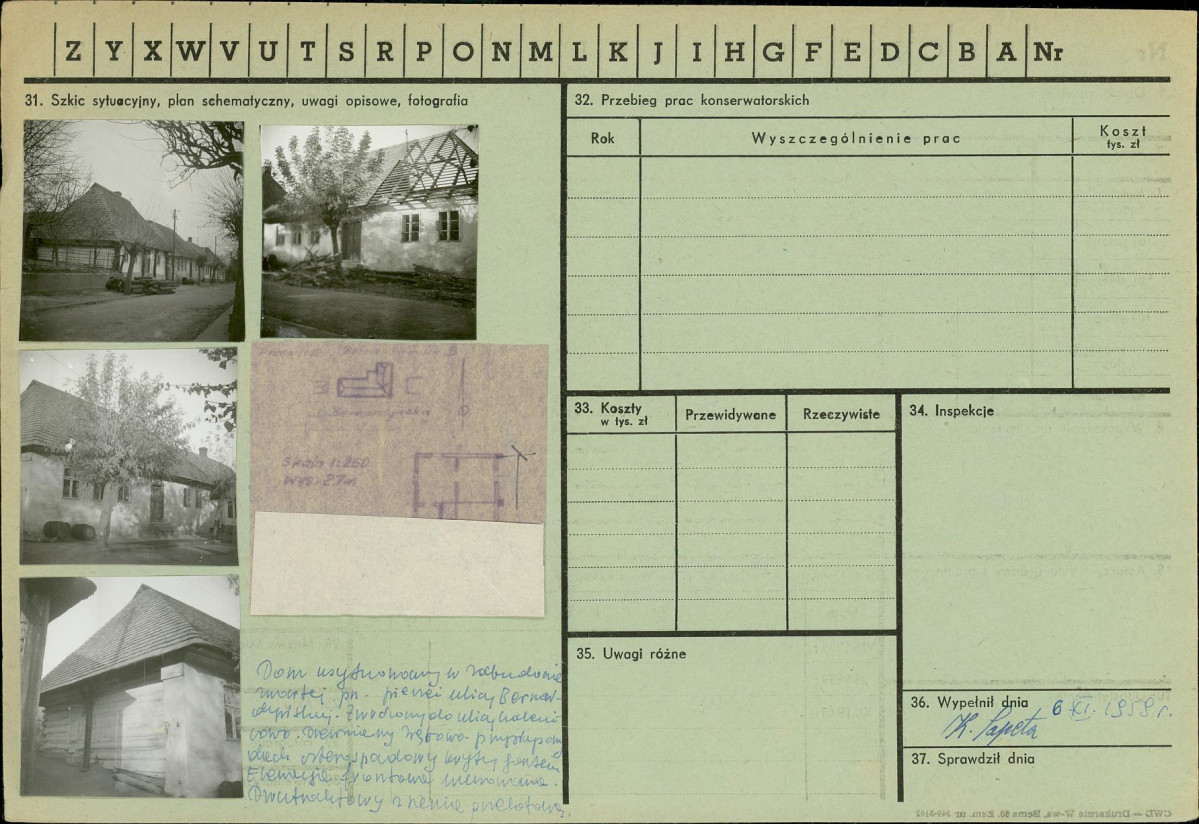 Z Y X W V U T S R P O N M L K J I H G F E D C B A Nr
31. Szkic sytuacyjny, plan schematyczny, uwagi opisowe, fotografia
ul. Bernardyńska
Skala 1:250
Dom usytuowany w zabudowie
zwartej pn. pierzei ulicy Bernar-
dyńskiej. Zwrócony do ulicy
Drewniany
dach czterospadowy kryty gontem
Elewacja frontowa murowana.
Dwutraktowy z sienią przelotową.
32. Przebieg prac konserwatorskich
Rok Wyszczególnienie prac Koszt
tys. zł
33. Koszty
w tys. zł
Przewidywane Rzeczywiste
34. Inspekcje
35. Uwagi różne
36. Wypełnił dnia 6 XI. 1959 r.
K. Sapeta
37. Sprawdził dnia